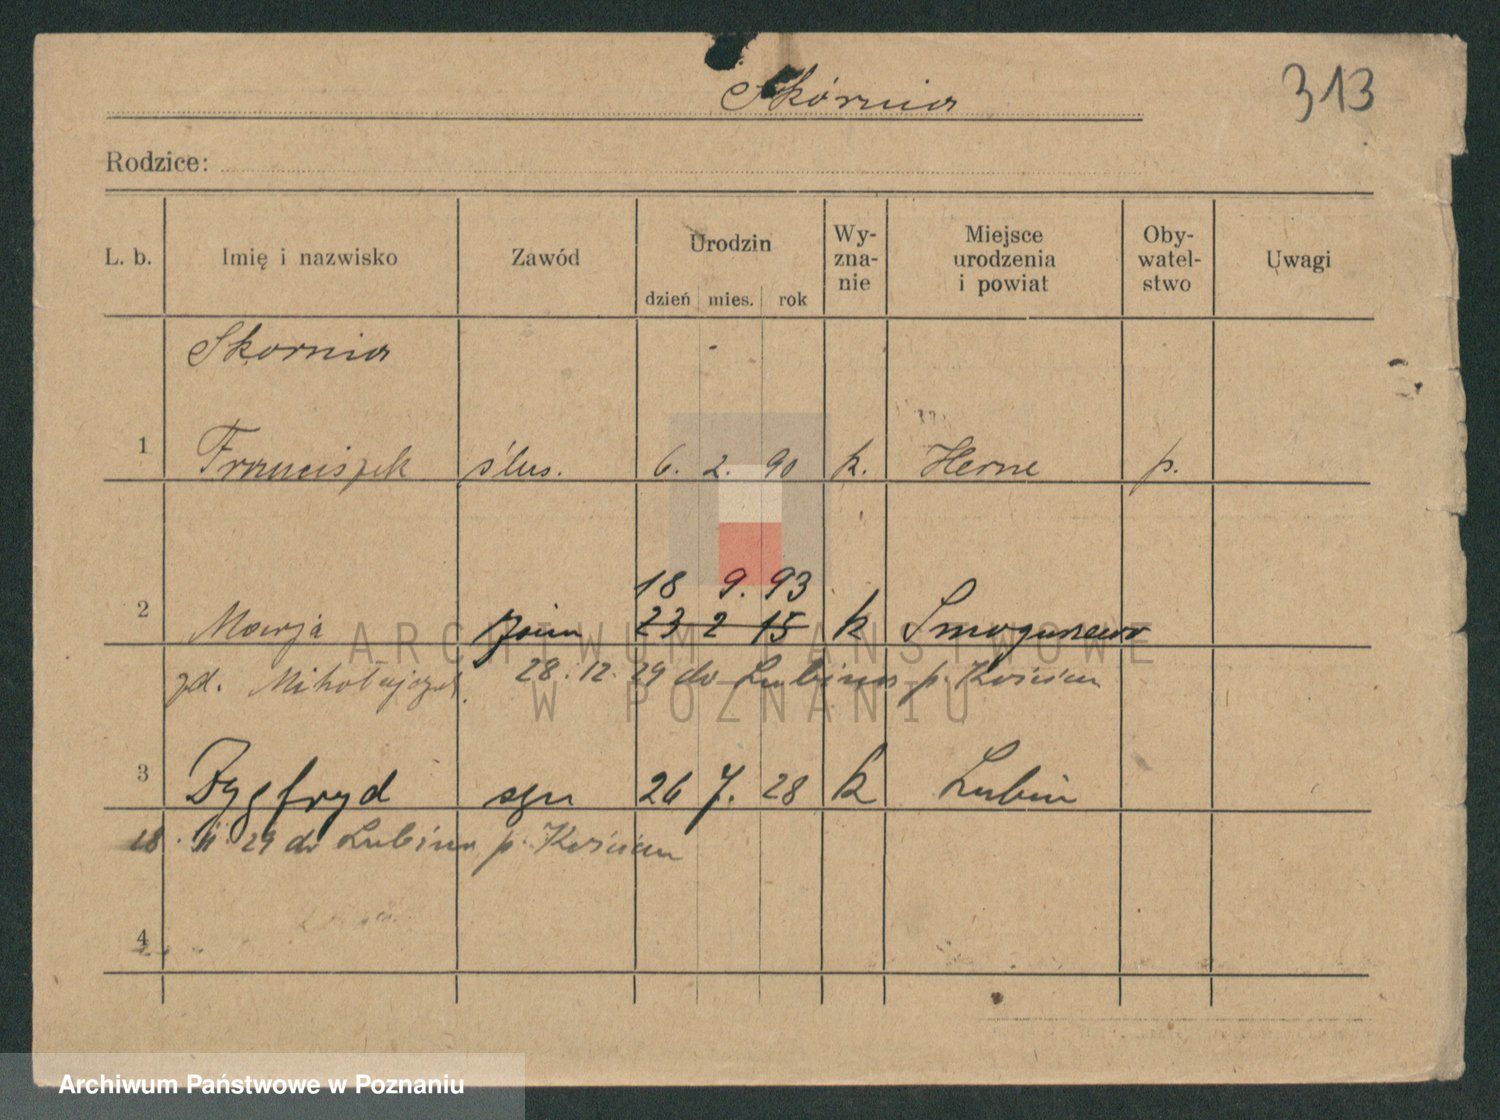 Skórnia
313
Rodzice:
L. b. Imię i nazwisko Zawód Urodzin dzień mies. rok Wy-zna-nie Miejsce urodzenia i powiat Oby-watel-stwo Uwagi
Skornia
1 Franciszek ślus. 6. 2. 90 k. Herne p.
18 9. 93
2 Marja żona 23 2 15 k Smogunewo
zd. Mikołajczak. 28. 12. 29 do Lubinia p. Kościan
3 Zygfryd syn 26 7. 28 k Lubin
28. 11. 29 do Lubinia p. Kościan
4
ARCHIWUM PAŃSTWOWE
W POZNANIU
Archiwum Państwowe w Poznaniu